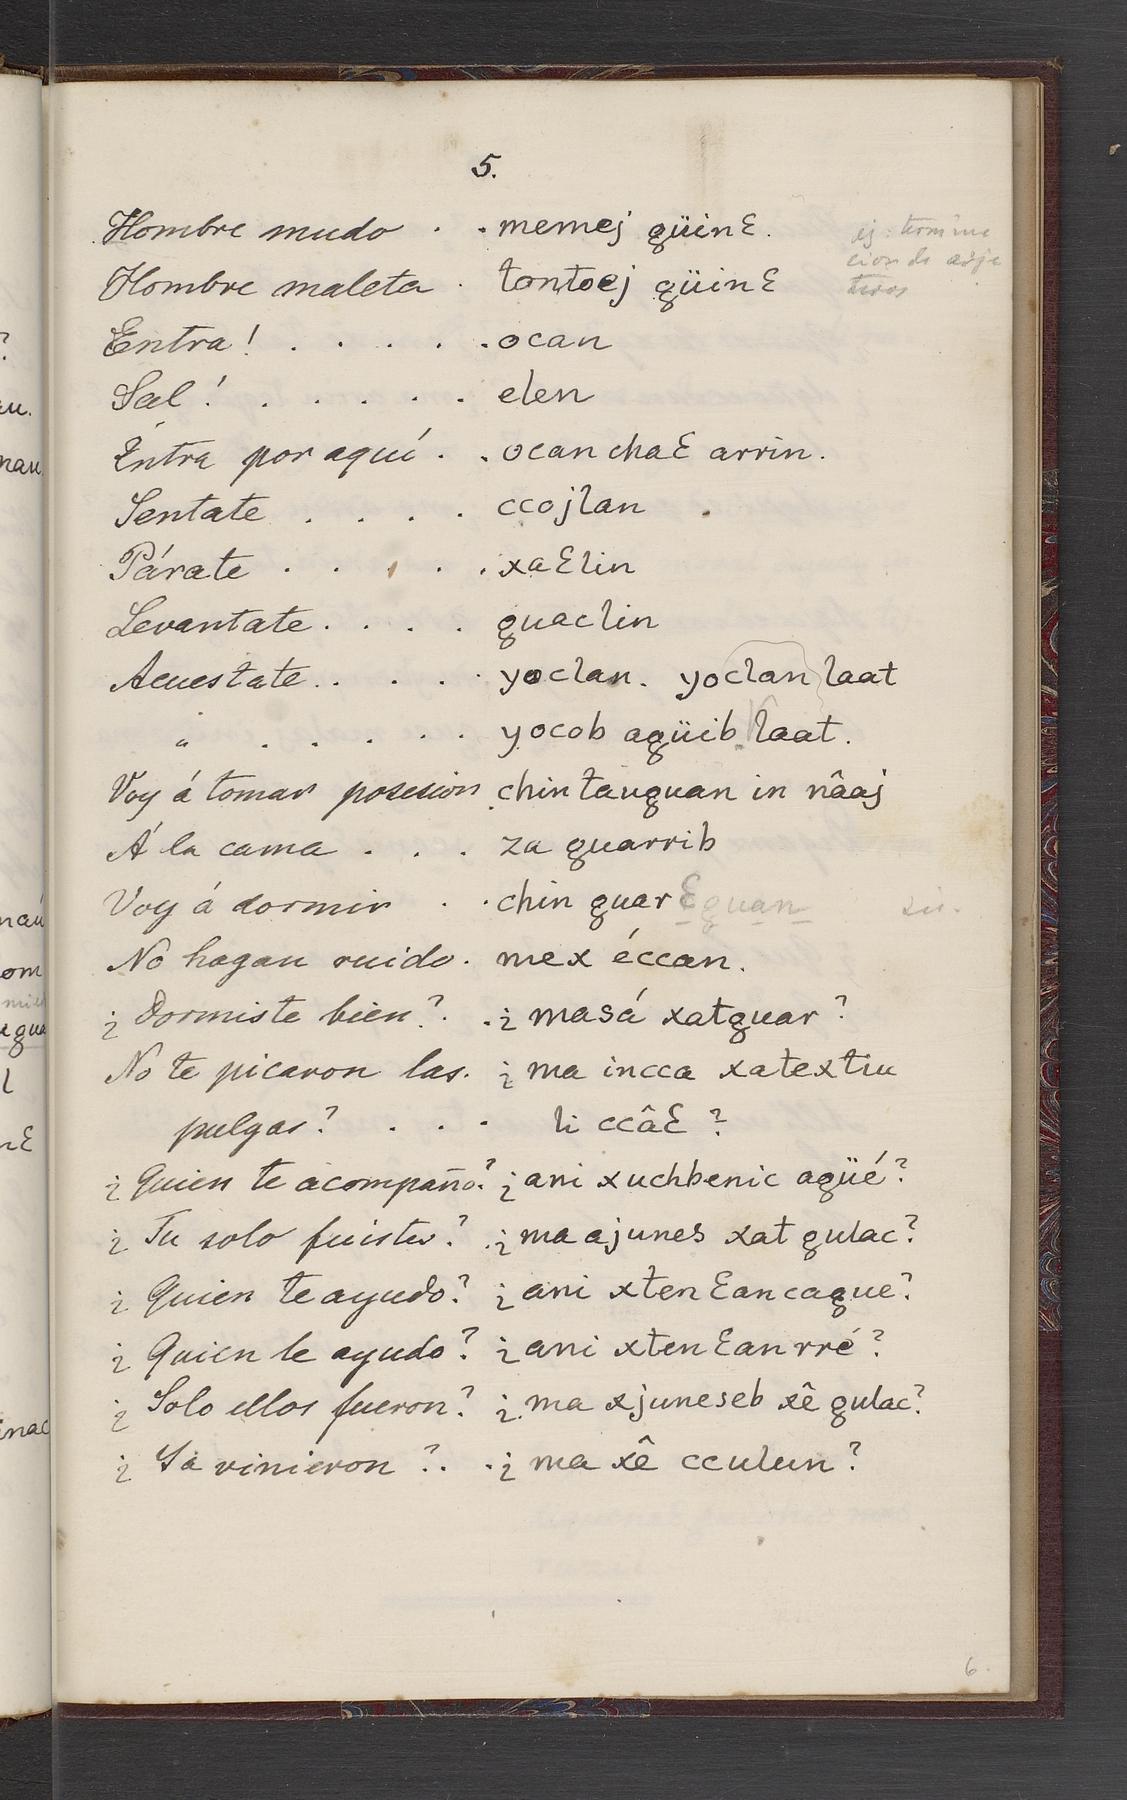 5.
Hombre mudo . . memej güinƐ.
ej: termina
cion de adje
tivos
Hombre maleta . tontoej güinƐ
Entra! . . . . . ocan
Sal! . . . . . elen
Entra por aquí . . ocan chaƐ arrin.
Sentate . . . . ccojlan
Párate . . . . . xaƐlin
Levantate . . . . guaclin
Acuestate . . . . yoclan. yoclan laat
" . . . . . yocob agüib laat.
Voy á tomar posesion chin tauguan in nâaj
Á la cama . . . za guarrib
Voy á dormir . . chin guar Ɛguan
No hagan ruido . mex éccan.
¿Dormiste bien? . . ¿masá xatguar?
No te picaron las . ¿ma incca xatextiu
pulgas? . . . li ccâƐ?
¿Quien te acompaño? ¿ani xuchbenic agüé?
¿Tu solo fuistes? . ¿ma ajunes xat gulac?
¿Quien te ayudo? ¿ani xtenƐancague?
¿Quien le ayudo? ¿ani xtenƐan rré?
¿Solo ellos fueron? ¿ma xjuneseb xê gulac?
¿Ya vinieron? . . ¿ma xê cculun?
6.